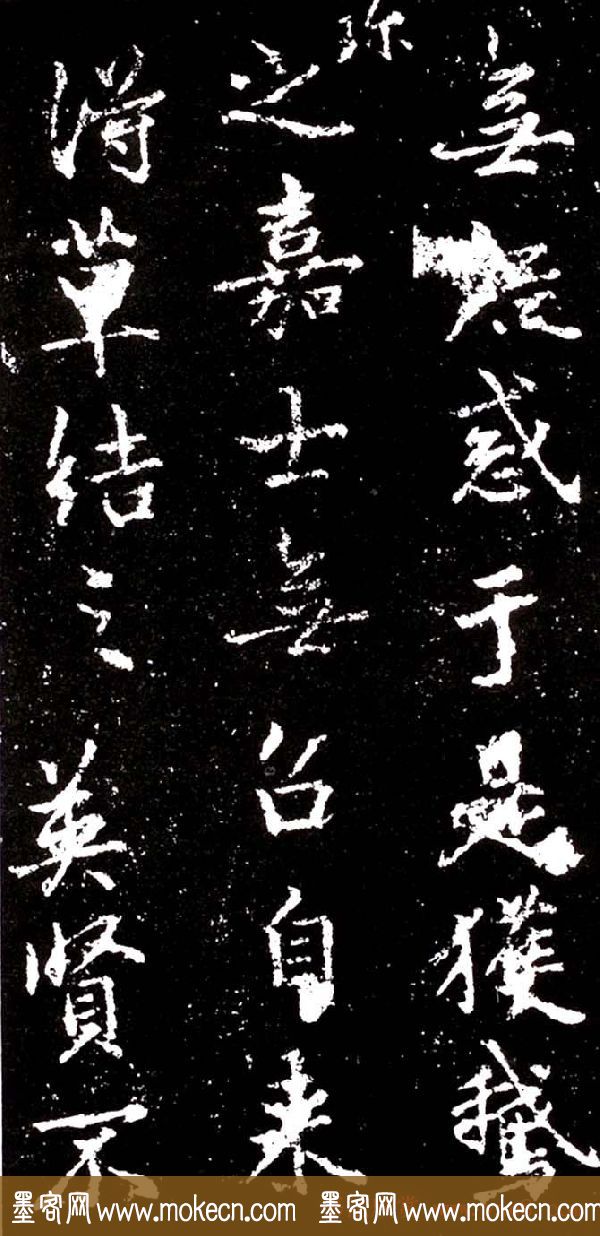 無疑惑于是獲
珎
之嘉士無召自来
得草結之英賢不
墨客网 www.mokecn.com 墨客网 www.mokecn.com